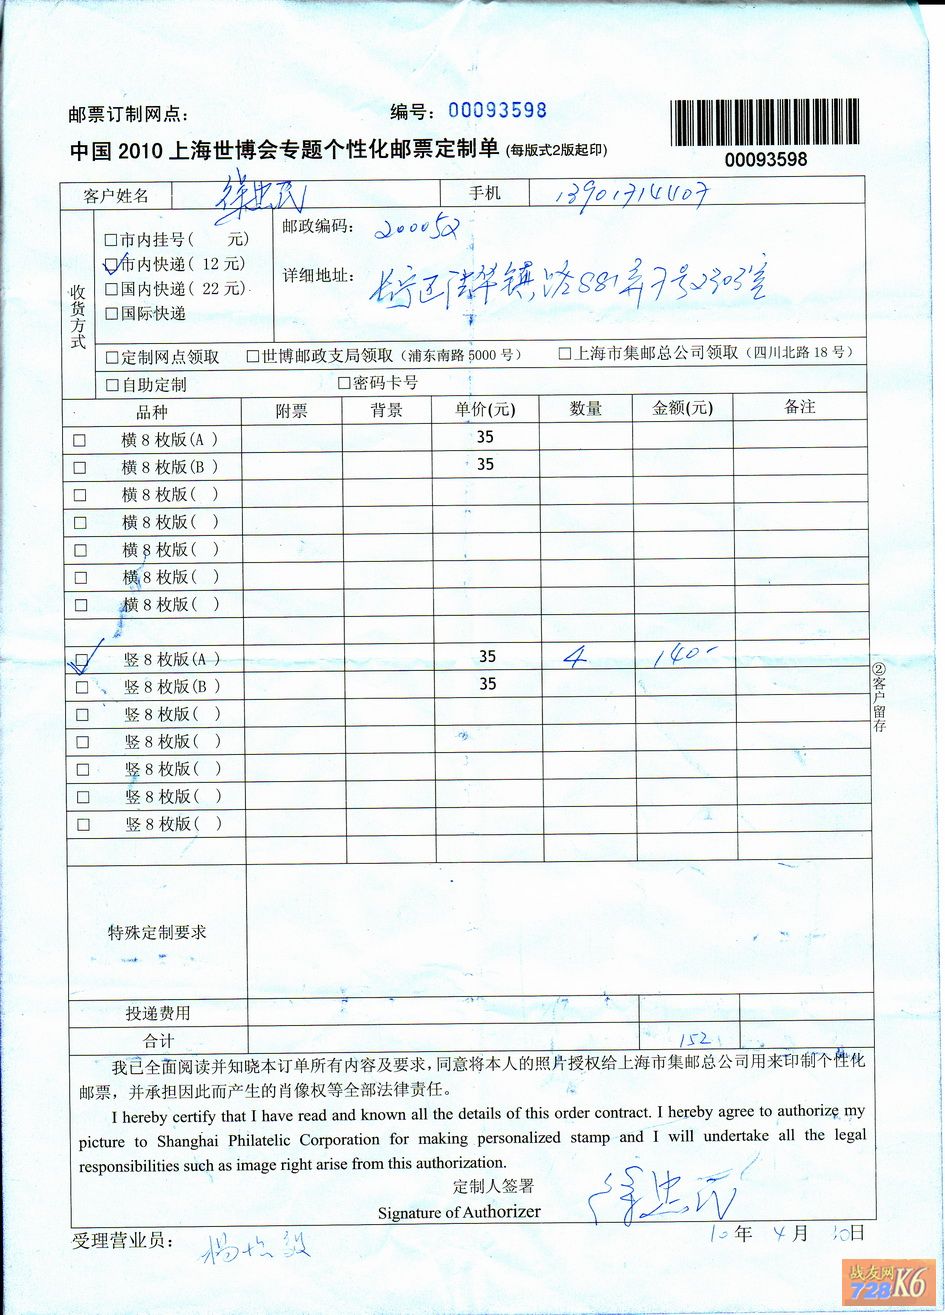 邮票订制网点： 编号：00093598
00093598
中国 2010 上海世博会专题个性化邮票定制单 (每版式2版起印)
客户姓名 徐忠民 手机 13901714407
收货方式
□市内挂号( 元) 邮政编码： 200052
□市内快递( 12 元)
□国内快递( 22 元) 详细地址： 长宁区法华镇路881弄7号2303室
□国际快递
□定制网点领取 □世博邮政支局领取（浦东南路 5000 号） □上海市集邮总公司领取（四川北路 18 号）
□自助定制 □密码卡号
品种 附票 背景 单价(元) 数量 金额(元) 备注
□ 横 8 枚版(A ) 35
□ 横 8 枚版(B ) 35
□ 横 8 枚版( )
□ 横 8 枚版( )
□ 横 8 枚版( )
□ 横 8 枚版( )
□ 横 8 枚版( )
□ 竖 8 枚版(A ) 35 4 140-
□ 竖 8 枚版(B ) 35
□ 竖 8 枚版( )
□ 竖 8 枚版( )
□ 竖 8 枚版( )
□ 竖 8 枚版( )
□ 竖 8 枚版( )
②客户留存
特殊定制要求
投递费用
合计 152
我已全面阅读并知晓本订单所有内容及要求，同意将本人的照片授权给上海市集邮总公司用来印制个性化
邮票，并承担因此而产生的肖像权等全部法律责任。
I hereby certify that I have read and known all the details of this order contract. I hereby agree to authorize my
picture to Shanghai Philatelic Corporation for making personalized stamp and I will undertake all the legal
responsibilities such as image right arise from this authorization.
定制人签署
Signature of Authorizer 徐忠民
受理营业员： 10 年 4 月 日
战友网
728 K6